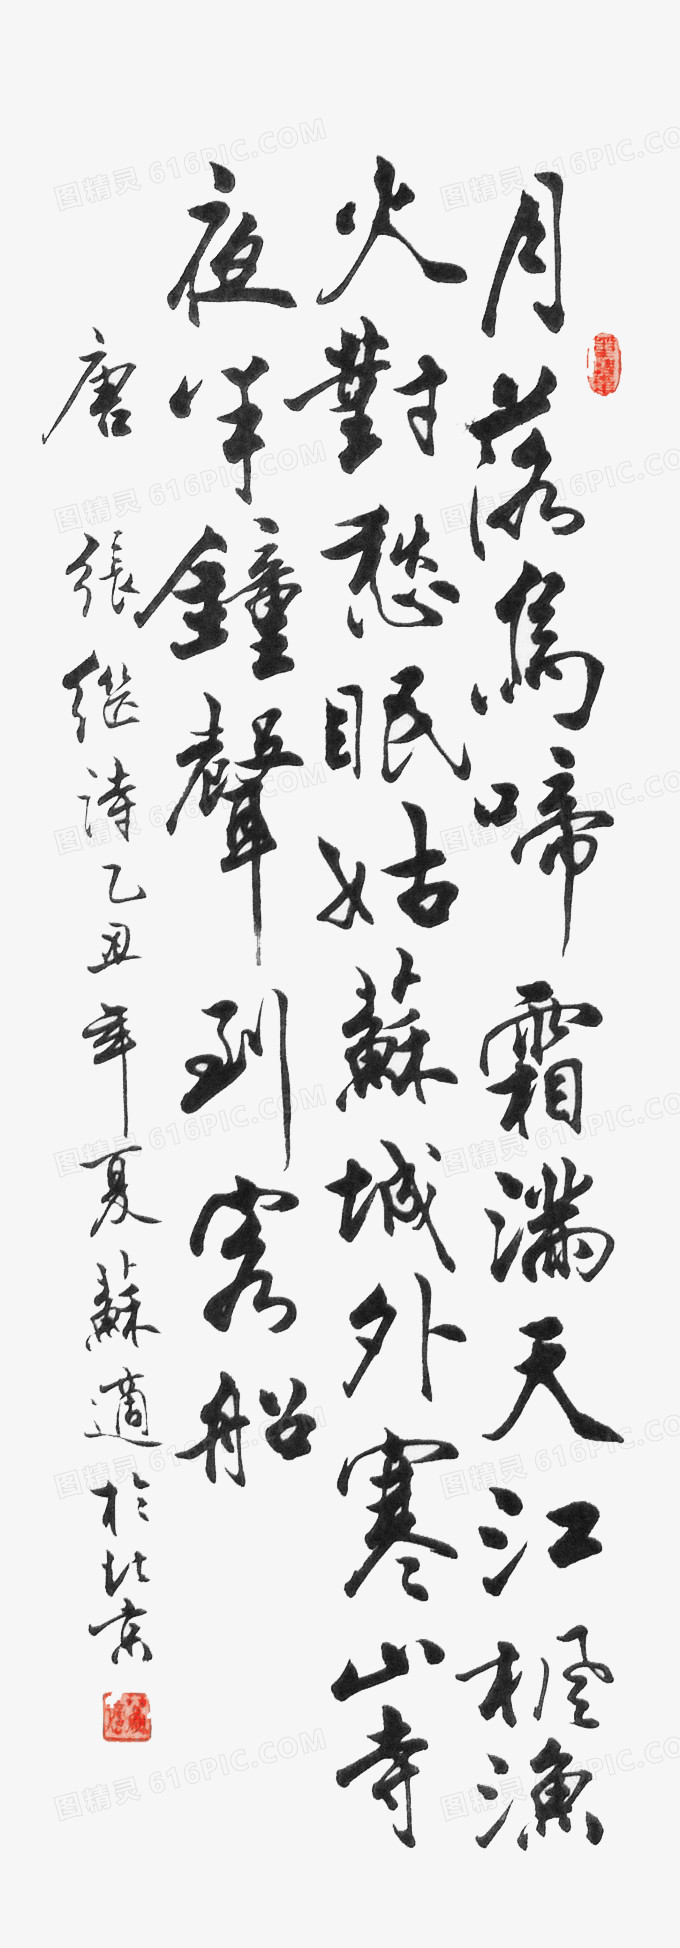 月落烏啼霜滿天江楓漁
火對愁眠姑蘇城外寒山寺
夜半鐘聲到客船
唐 張繼詩乙丑年夏蘇適於北京
图精灵 616PIC.COM